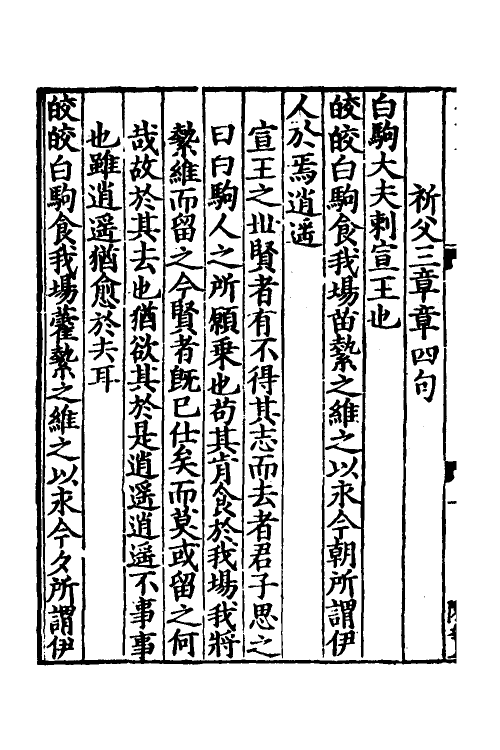 祈父三章章四句
白駒大夫刺宣王也
皎皎白駒食我場苗縶之維之以永今朝所謂伊
人於焉逍遥
宣王之世賢者有不得其志而去者君子思之
曰白駒人之所願乗也苟其肯食於我場我將
縶維而留之今賢者旣已仕矣而莫或留之何
哉故於其去也猶欲其於是逍遥逍遥不事事
也雖逍遥猶愈於去耳
皎皎白駒食我場藿縶之維之以永今夕所謂伊